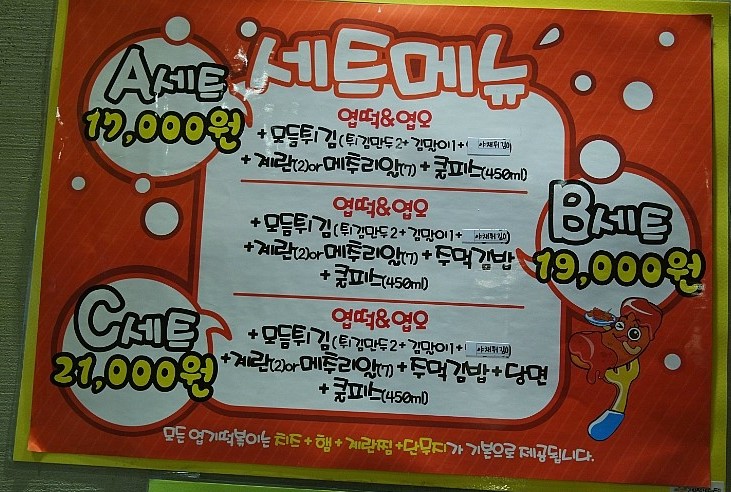 세트메뉴
A세트
17,000원
엽떡&엽오
+모듬튀김(튀김만두2+김말이1+야채튀김)
+계란(2)or메추리알(7)+쿨피스(450ml)
B세트
19,000원
엽떡&엽오
+모듬튀김(튀김만두2+김말이1+야채튀김)
+계란(2)or메추리알(7)+주먹김밥
+쿨피스(450ml)
C세트
21,000원
엽떡&엽오
+모듬튀김(튀김만두2+김말이1+야채튀김)
+계란(2)or메추리알(7)+주먹김밥+당면
+쿨피스(450ml)
모든 엽기떡볶이는 치즈+햄+계란찜+단무지가 기본으로 제공됩니다.